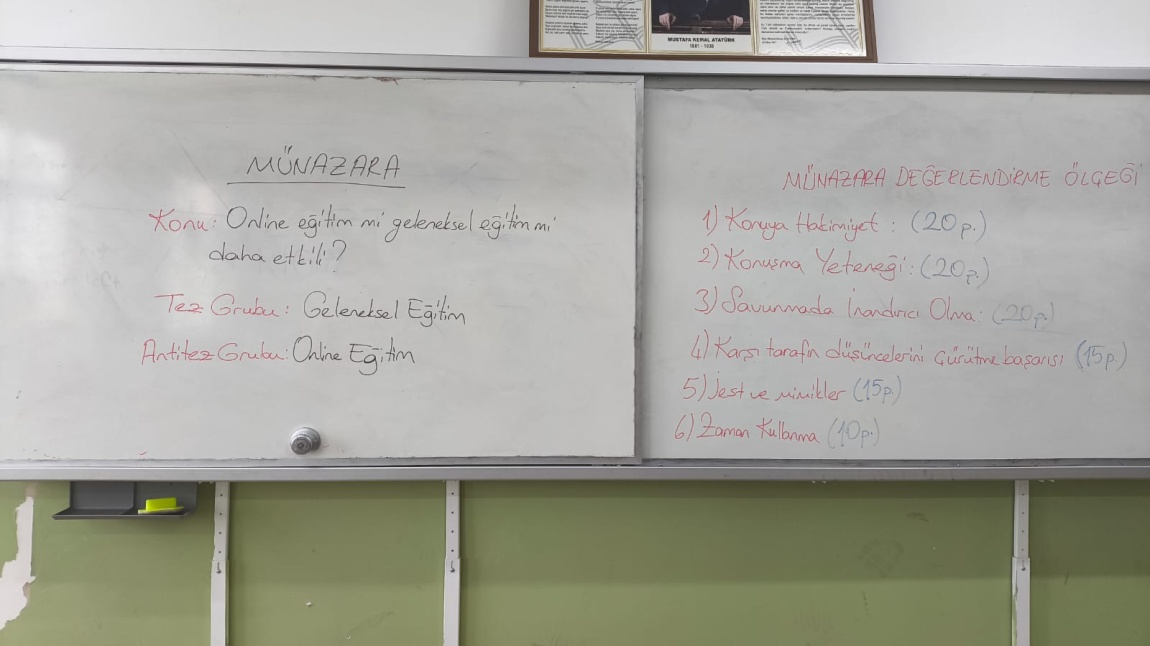 MUSTAFA KEMAL ATATÜRK
1881 - 1938
MÜNAZARA
Konu: Online eğitim mi geleneksel eğitim mi
daha etkili?
Tez Grubu: Geleneksel Eğitim
Antitez Grubu: Online Eğitim
MÜNAZARA DEĞERLENDİRME ÖLÇEĞİ
1) Konuya Hakimiyet : (20 p.)
2) Konuşma Yeteneği : (20p.)
3) Savunmada İnandırıcı Olma: (20p.)
4) Karşı tarafın düşüncelerini çürütme başarısı (15p.)
5) Jest ve mimikler (15p.)
6) Zaman Kullanma (10p.)